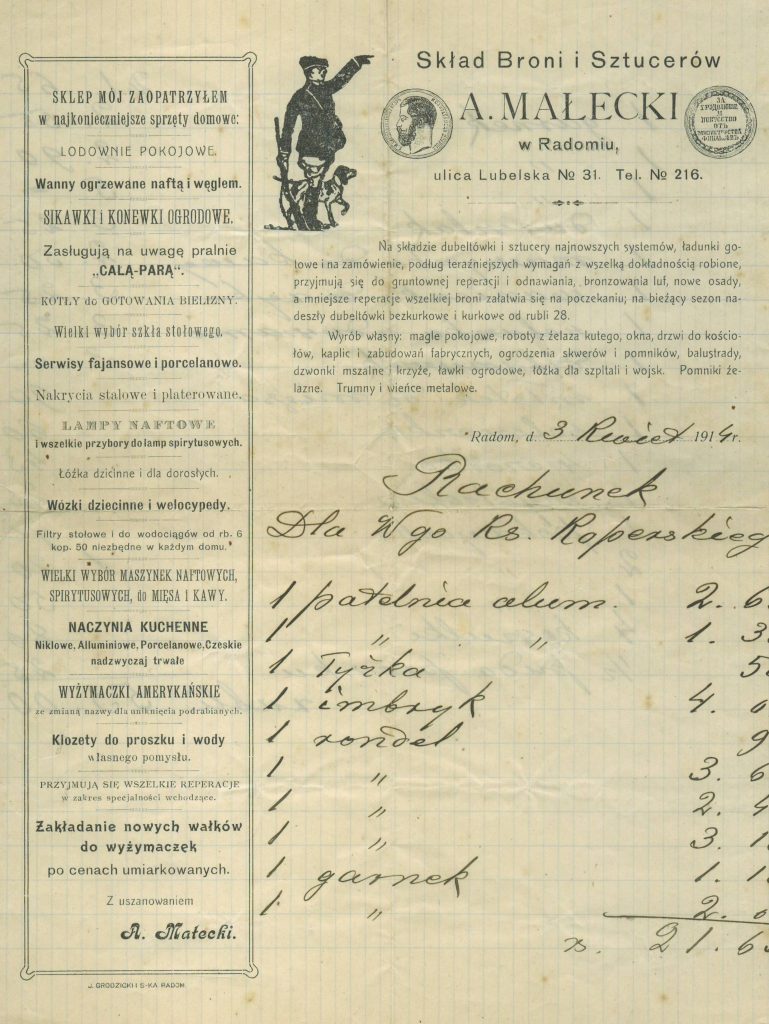 SKLEP MÓJ ZAOPATRZYŁEM
w najkonieczniejsze sprzęty domowe:
LODOWNIE POKOJOWE.
Wanny ogrzewane naftą i węglem.
SIKAWKI i KONEWKI OGRODOWE.
Zasługują na uwagę pralnie
„CALĄ-PARĄ“.
KOTŁY do GOTOWANIA BIELIZNY.
Wielki wybór szkła stołowego.
Serwisy fajansowe i porcelanowe.
Nakrycia stalowe i platerowane.
LAMPY NAFTOWE
i wszelkie przybory do lamp spirytusowych.
Łóżka dziecinne i dla dorosłych.
Wózki dziecinne i welocypedy.
Filtry stołowe i do wodociągów od rb. 6
kop. 50 niezbędne w każdym domu.
WIELKI WYBÓR MASZYNEK NAFTOWYCH,
SPIRYTUSOWYCH, do MIĘSA I KAWY.
NACZYNIA KUCHENNE
Niklowe, Alluminiowe, Porcelanowe, Czeskie
nadzwyczaj trwałe
WYŻYMACZKI AMERYKAŃSKIE
ze zmianą nazwy dla uniknięcia podrabianych.
Klozety do proszku i wody
własnego pomysłu.
PRZYJMUJĄ SIĘ WSZELKIE REPERACJE
w zakres specjalności wchodzące.
Zakładanie nowych wałków
do wyżymaczek
po cenach umiarkowanych.
Z uszanowaniem
A. Małecki.
J. GRODZICKI I S-KA RADOM
Skład Broni i Sztucerów
A. MAŁECKI
w Radomiu,
ulica Lubelska № 31. Tel. № 216.
ЗА
ТРУДОЛЮБІЕ
И
ИСКУССТВО
ОТЪ
МИНИСТЕРСТВА
ФИНАНСОВЪ
Na składzie dubeltówki i sztucery najnowszych systemów, ładunki go-
towe i na zamówienie, podług teraźniejszych wymagań z wszelką dokładnością robione,
przyjmują się do gruntownej reperacji i odnawiania, bronzowania luf, nowe osady,
a mniejsze reperacje wszelkiej broni załatwia się na poczekaniu; na bieżący sezon na-
deszły dubeltówki bezkurkowe i kurkowe od rubli 28.
Wyrób własny: magle pokojowe, roboty z żelaza kutego, okna, drzwi do kościo-
łów, kaplic i zabudowań fabrycznych, ogrodzenia skwerów i pomników, balustrady,
dzwonki mszalne i krzyże, ławki ogrodowe, łóżka dla szpitali i wojsk. Pomniki że-
lazne. Trumny i wieńce metalowe.
Radom, d. 3 Kwiet 1914 r.
Rachunek
Dla Wgo Ks. Koperskieg
1 patelnia alum. 2. 6
1 „ „ 1. 3
1 Łyżka 5
1 imbryk 4. 0
1 rondel 9
1 „ 3. 6
1 „ 2. 4
1 „ 3. 1
1 garnek 1. 1
1 „ 2. 0
21. 6